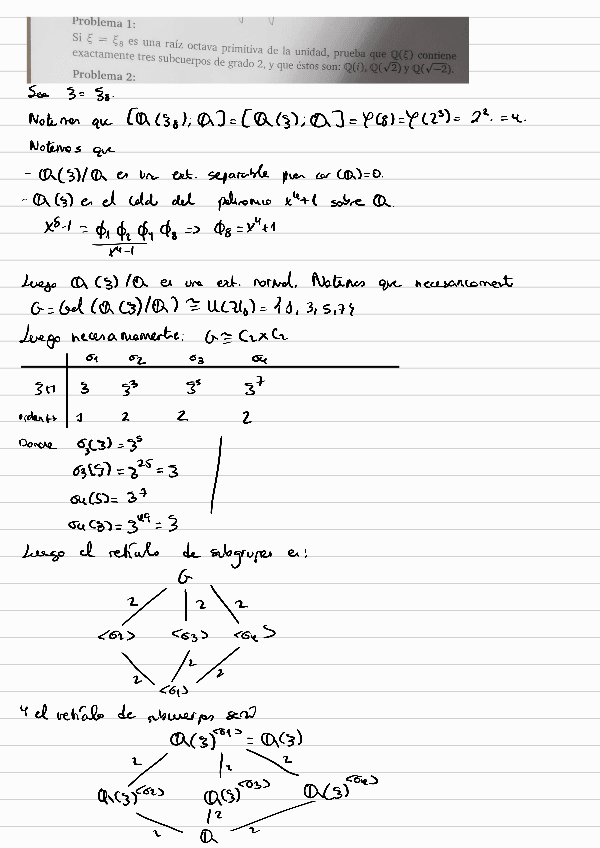 Problema 1:
Si ξ = ξ₈ es una raíz octava primitiva de la unidad, prueba que Q(ξ) contiene
exactamente tres subcuerpos de grado 2, y que éstos son: Q(i), Q(√2) y Q(√−2).
Problema 2:
Sea ξ = ξ₈.
Notemos que [Q(ξ₈); Q] = [Q(ξ); Q] = φ(8) = φ(2³) = 2². = 4.
Notemos que
- Q(ξ)/Q es una ext. separable pues car(Q)=0.
- Q(ξ) es el cdd del polinomio x⁴+1 sobre Q.
x⁸-1 = ϕ₁ ϕ₂ ϕ₄ ϕ₈ => ϕ₈ = x⁴+1
x⁴-1
Luego Q(ξ)/Q es una ext. normal. Notemos que necesariament
G = Gal(Q(ξ)/Q) ≅ U(Z/8) = {1, 3, 5, 7}
Luego necesariamente: G ≅ C₂ x C₂
σ1 σ2 σ3 σ4
ξ ↦ ξ ξ³ ξ⁵ ξ⁷
1 2 2 2
Donde σ₃(ξ) = ξ⁵
σ₃(ξ) = ξ²⁵ = ξ
σ₄(ξ) = ξ⁷
σ₄(ξ) = ξ⁴⁹ = ξ
Luego el retículo de subgrupos es:
G
2 2 2
<σ2> <σ3> <σ4>
2 2 2
<σ1>
Y el retículo de subcuerpos será
Q(ξ)^<σ1> = Q(ξ)
2 2 2
Q(ξ)^<σ2> Q(ξ)^<σ3> Q(ξ)^<σ4>
2 2 2
Q